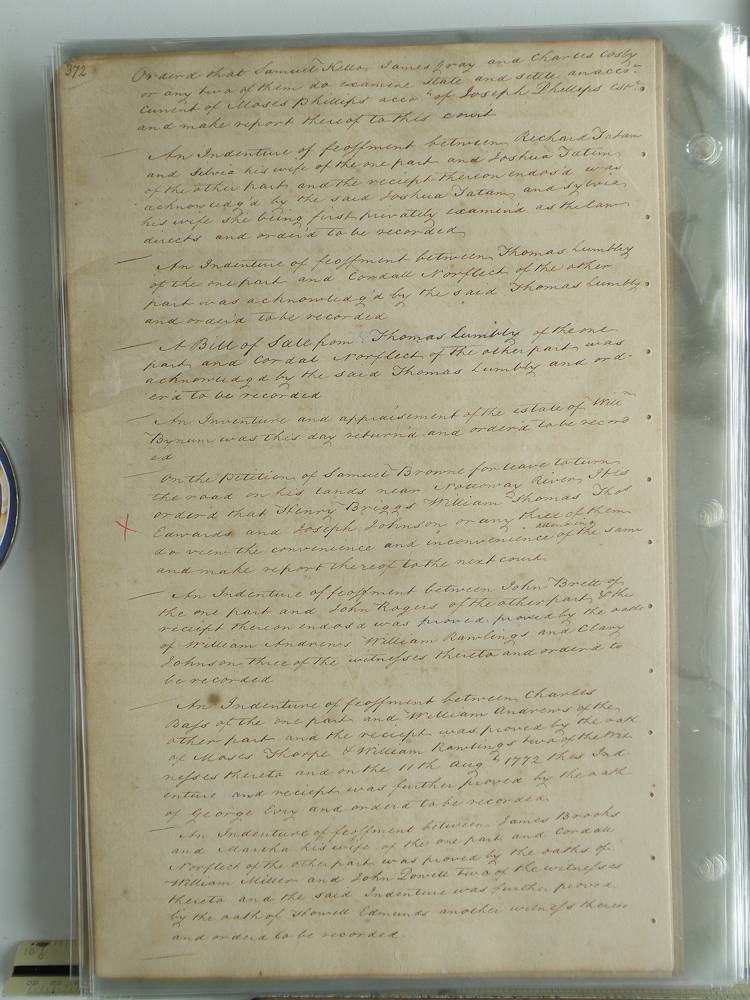 372
Orderd that Samuel Kello, James Gray and Charles Cosby
or any two of them do examine state and settle an acco.t
current of Moses Phillips acco.t of Joseph Phillips est.e
and make report thereof to this court
An Indenture of feoffment between Richard Tatum
and Silvia his wife of the one part and Joshua Tatum
of the other part and the reciept thereon endos'd was
acknowledg'd by the said Joshua Tatum and Sylvia
his wife she being first privately examin'd as the law
directs and order'd to be recorded
An Indenture of feoffment between Thomas Lumbly
of the one part and Cordall Norflect of the other
part was acknowledg'd by the said Thomas Lumbly
and order'd to be recorded
A Bill of Sale from Thomas Lumbly of the one
part and Cordal Norflect of the other part was
acknowledgd by the said Thomas Lumbly and ord-
erd to be recorded
An Inventure and appraisement of the estate of Will.m
Bynum was this day return'd and orderd to be record
ed
On the Petition of Samuel Browne for leave to turn
the road on his lands near Nottoway River It is
order'd that Henry Briggs William Thomas Tho.s
Edwards and Joseph Johnson or any three of them
do view the convenience and inconvenience attending of the same
and make report thereof to the next court
An Indenture of feoffment between John Brett of
the one part and John Rogers of the other part & the
reciept thereon endos'd was proved proved by the oath
of William Andrews William Rawlings and Clary
Johnson three of the witnesses thereto and orderd to
be recorded
An Indenture of feoffment between Charles
Bass of the one part and William Andrews of the
other part and the reciept was proved by the oath
of Moses Thorpe & William Rawlings two of the Wit
nesses thereto and on the 11th Aug.t 1772 this Ind
enture and reciept was further proved by the oath
of George Evry and orderd to be recorded
An Indenture of feoffment between James Brooks
and Martha his wife of the one part and Cordall
Norflect of the other part was proved by the oaths of
William Miller and John Dowell two of the witnesses
thereto and the said Indenture was further proved
by the oath of Howell Edmunds another witness thereto
and orderd to be recorded